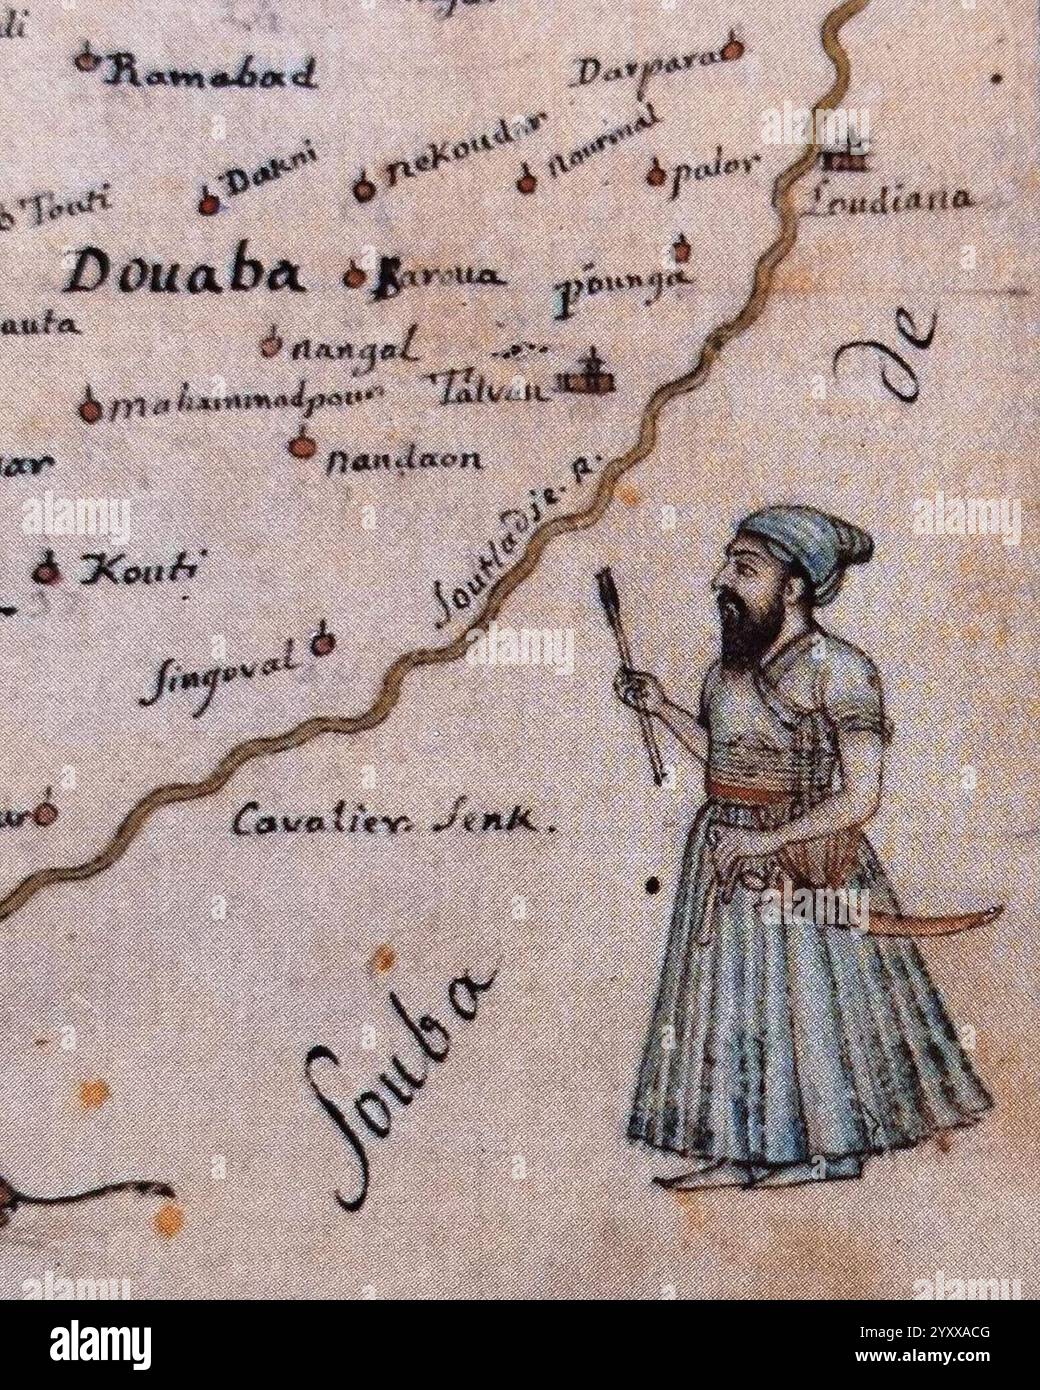 Ramabad
Darpara
Dakni
nekoudar
nourmal
palor
Loudiana
Touti
Douaba
Karoua
pounga
auta
nangal
de
mahammadpour
Talvan
nandaon
Soutladje. R.
Kouti
Singoval
Cavalier. Senk.
Souba
alamy
Image ID: 2YXXACG
www.alamy.com